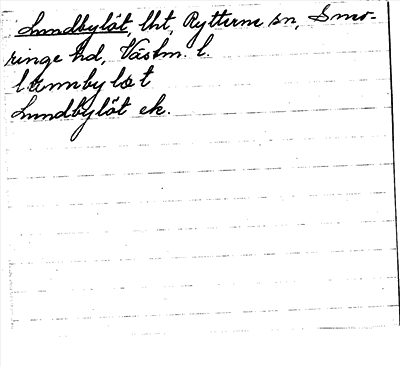 Lundbylöt, lht, Rytterne sn, Snev-
ringe hd, Västm. l.
lunnbylöt
Lundbylöt ek.